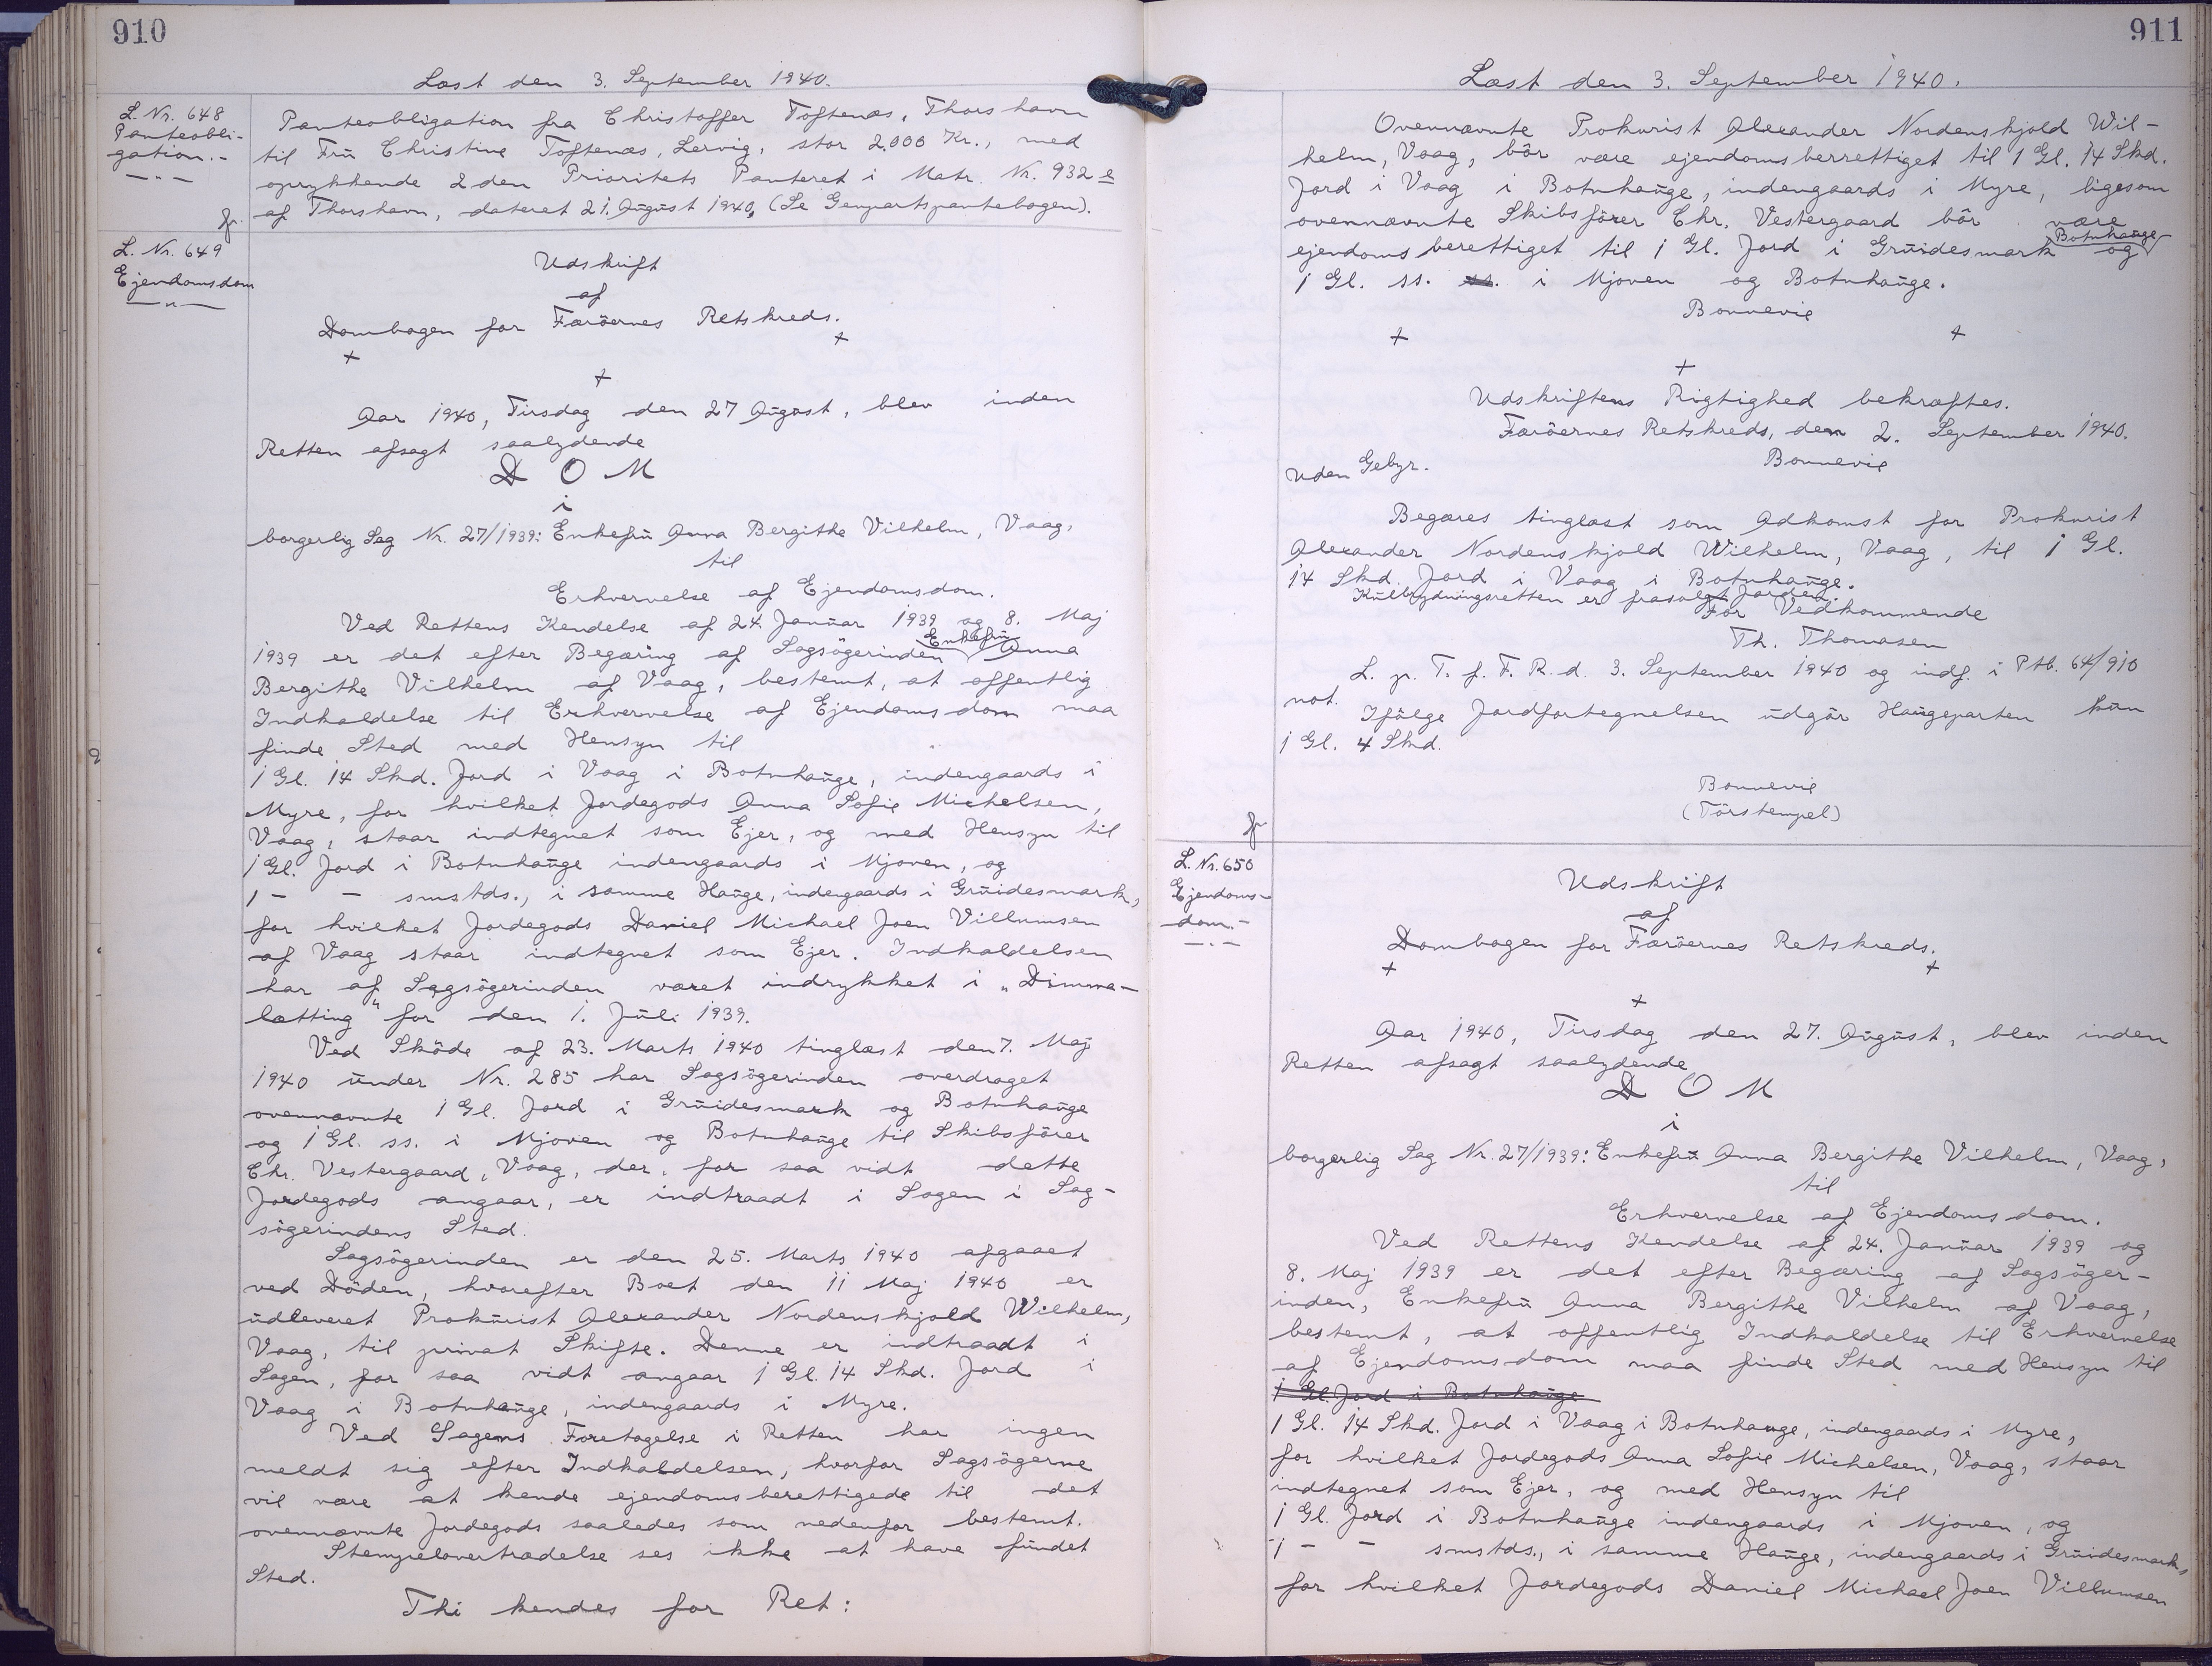 910
Læst den 3. September 1940.
L. Nr. 648
Panteobli-
gation.-
Panteobligation fra Christoffer Toftenæs, Thorshavn
til Frū Christine Toftenæs, Lervig, stor 2.000 Kr., med
oprykkende 2den Prioritets Panteret i Matr. Nr. 932 e
af Thorshavn, dateret 21. Aūgūst 1940. (Se Genpartspantebogen).
L. Nr. 649
Ejendomsdom
Udskrift
af
Dombogen for Færöernes Retskreds.
+ +
+
Aar 1940, Tirsdag den 27 Aūgūst, blev inden
Retten afsagt saalydende
D O M
i
borgerlig Sag Nr. 27/1939: Enkefrū Anna Bergithe Vilhelm, Vaag,
til
Erhvervelse af Ejendomsdom.
Ved Rettens Kendelse af 24. Janūar 1939 og 8. Maj
1939 er det efter Begæring af Sagsögerinden Enkefrū Anna
Bergithe Vilhelm af Vaag, bestemt, at offentlig
Indkaldelse til Erhvervelse af Ejendomsdom maa
finde Sted med Hensyn til
1 Gl. 14 Skd. Jord i Vaag i Botnhaūge, indengaards i
Myre, for hvilket Jordegods Anna Sofie Michelsen,
Vaag, staar indtegnet som Ejer, og med Hensyn til
1 Gl. Jord i Botnhaūge indengaards i Mjoven, og
1 - - smstds., i samme Haūge, indengaards i Grūidesmark,
for hvilket Jordegods Daniel Michael Joen Villumsen
af Vaag staar indtegnet som Ejer. Indkaldelsen
har af Sagsögerinden været indrykket i „Dimma-
lætting" for den 1. Jūli 1939.
Ved Sköde af 23. Marts 1940 tinglæst den 7. Maj
1940 ūnder Nr. 285 har Sagsögerinden overdraget
ovennævnte 1 Gl. Jord i Grūidesmark og Botnhaūge
og 1 Gl. ss. i Mjoven og Botnhaūge til Skibsförer
Chr. Vestergaard, Vaag, der, for saa vidt dette
Jordegods angaar, er indtraadt i Sagen i Sag-
sögerindens Sted.
Sagsögerinden er den 25. Marts 1940 afgaaet
ved Döden, hvorefter Boet den 11 Maj 1940 er
ūdleveret Prokūrist Alexander Nordenskjold Wilhelm,
Vaag, til privat Skifte. Denne er indtraadt i
Sagen, for saa vidt angaar 1 Gl. 14 Skd. Jord i
Vaag i Botnhaūge, indengaards i Myre.
Ved Sagens Foretagelse i Retten har ingen
meldt sig efter Indkaldelsen, hvorfor Sagsögerne
vil være at kende ejendomsberettigede til det
ovennævnte Jordegods saaledes som nedenfor bestemt.
Stempelovertrædelse ses ikke at have fūndet
Sted.
Thi kendes for Ret:
911
Læst den 3. September 1940.
Ovennævnte Prokurist Alexander Nordenskjold Wil-
helm, Vaag, bör være ejendomsberrettiget til 1 Gl. 14 Skd.
Jord i Vaag i Botnhaūge, indengaards i Myre, ligesom
ovennævnte Skibsförer Chr. Vestergaard bör være
ejendomsberettiget til 1 Gl. Jord i Grūidesmark og Botnhaūge
1 Gl. ss. ss. i Mjoven og Botnhaūge.
Bonnevie
+ +
+
Udskriftens Rigtighed bekræftes.
Færöernes Retskreds, den 2. September 1940.
Bonnevie
Uden Gebyr.
Begæres tinglæst som Adkomst for Prokurist
Alexander Nordenskjold Wilhelm, Vaag, til 1 Gl.
14 Skd. Jord i Vaag i Botnhaūge.
Kūlbrydningsretten er frasolgt Jorden.
For Vedkommende
Th. Thomasen
L. p. T. f. F. R. d. 3. September 1940 og indf. i Ptb. 64/910
not. Ifölge Jordfortegnelsen ūdgör Haūgeparten kūn
1 Gl. 4 Skd.
Bonnevie
(Törstempel)
L. Nr. 650
Ejendoms-
dom.-
Udskrift
af
Dombogen for Færöernes Retskreds.
+ +
+
Aar 1940, Tirsdag den 27. Aūgūst, blev inden
Retten afsagt saalydende
D O M
i
borgerlig Sag Nr. 27/1939: Enkefrū Anna Bergithe Vilhelm, Vaag,
til
Erhvervelse af Ejendomsdom.
Ved Rettens Kendelse af 24. Janūar 1939 og
8. Maj 1939 er det efter Begæring af Sagsöger-
inden, Enkefrū Anna Bergithe Vilhelm af Vaag,
bestemt, at offentlig Indkaldelse til Erhvervelse
af Ejendomsdom maa finde Sted med Hensyn til
1 Gl. Jord i Botnhaūge
1 Gl. 14 Skd. Jord i Vaag i Botnhauge, indengaards i Myre,
for hvilket Jordegods Anna Sofie Michelsen, Vaag, staar
indtegnet som Ejer, og med Hensyn til
1 Gl. Jord i Botnhaūge indengaards i Mjoven, og
1 - - smstds., i samme Haūge, indengaards i Grūidesmark,
for hvilket Jordegods Daniel Michael Joen Villumsen